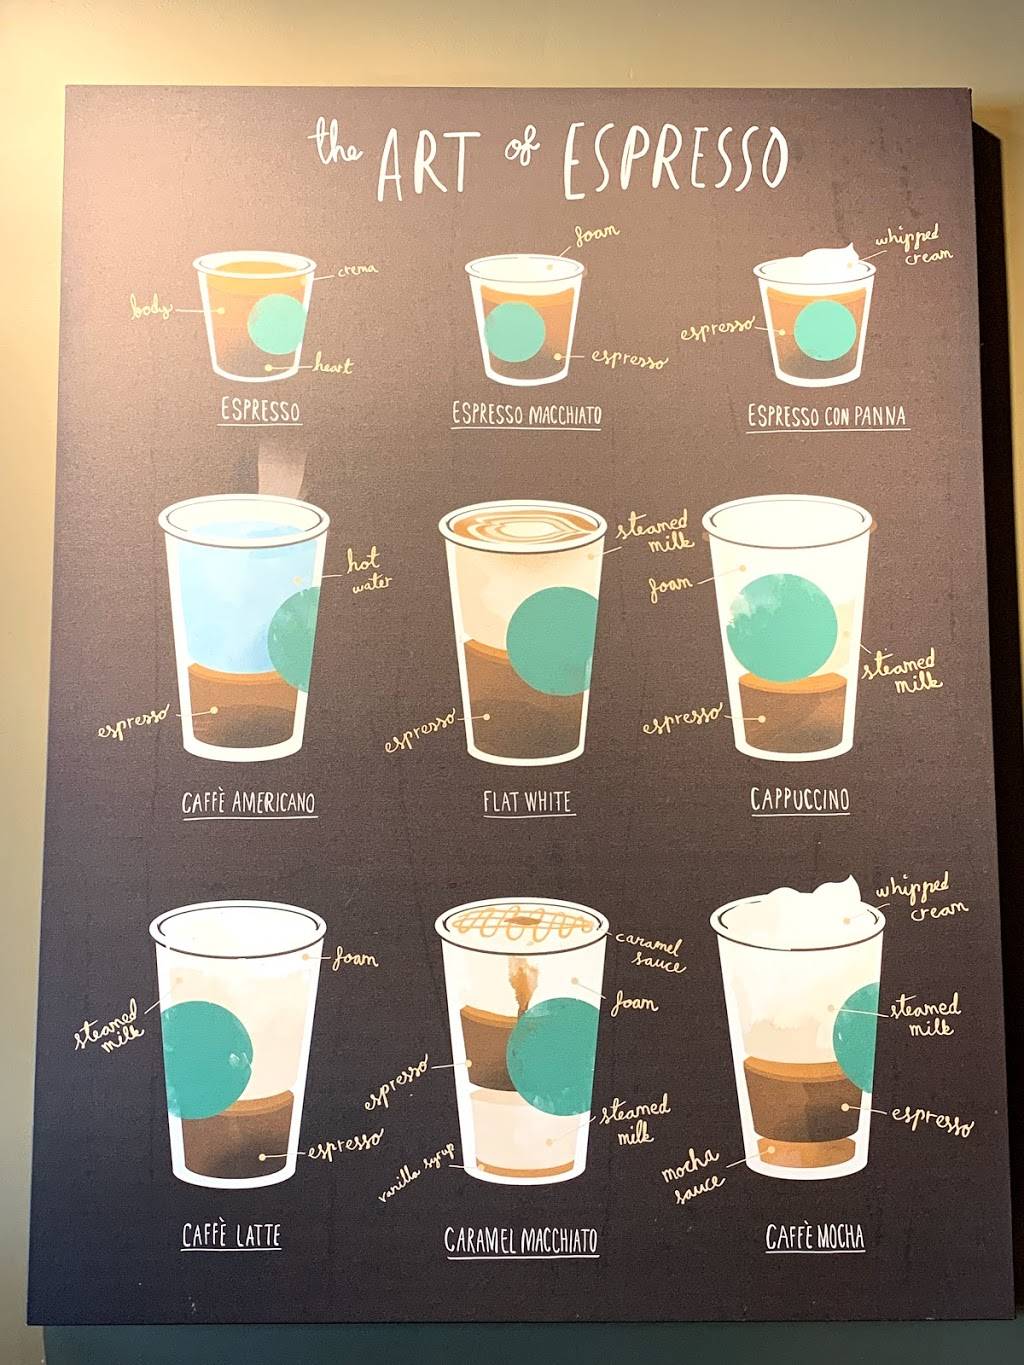 the ART of ESPRESSO
foam
whipped
cream
crema
body
espresso
espresso
heart
ESPRESSO
ESPRESSO MACCHIATO
ESPRESSO CON PANNA
steamed
milk
hot
water
foam
steamed
milk
espresso
espresso
espresso
CAFFÈ AMERICANO
FLAT WHITE
CAPPUCCINO
whipped
cream
caramel
sauce
foam
foam
steamed
milk
steamed
milk
espresso
steamed
milk
espresso
espresso
vanilla syrup
mocha
sauce
CAFFÈ LATTE
CARAMEL MACCHIATO
CAFFÈ MOCHA